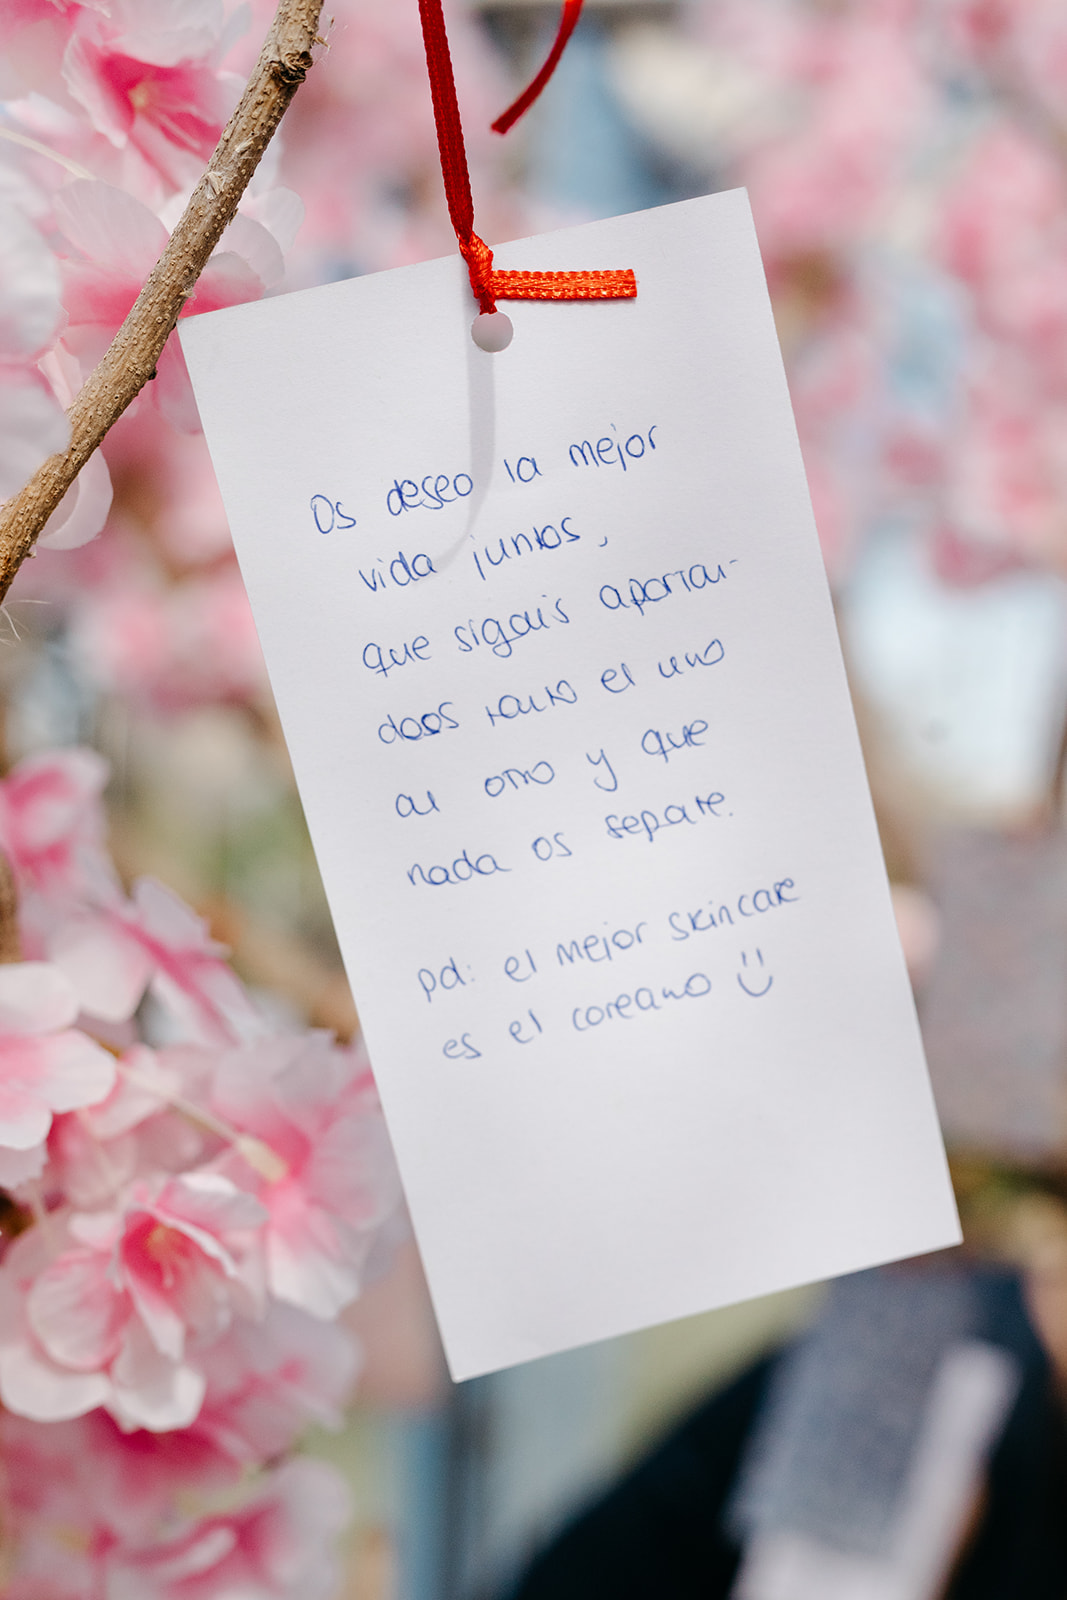 Os deseo la mejor
vida juntos,
que sigais aportan-
doos tanto el uno
al otro y que
nada os separe.
pd: el mejor skincare
es el coreano